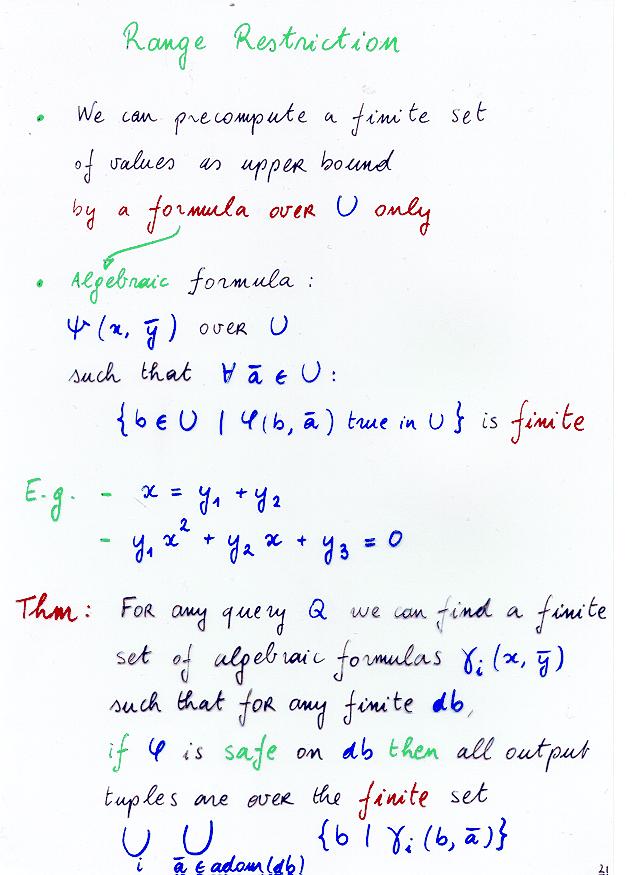 Range Restriction
• We can precompute a finite set
of values as upper bound
by a formula over U only
• Algebraic formula :
Ψ(x, ȳ) over U
such that ∀ ā ∈ U :
{b ∈ U | φ(b, ā) true in U} is finite
E.g. - x = y₁ + y₂
- y₁x² + y₂x + y₃ = 0
Thm: For any query Q we can find a finite
set of algebraic formulas γᵢ(x, ȳ)
such that for any finite db,
if φ is safe on db then all output
tuples are over the finite set
⋃ᵢ ⋃ ā ∈ adom(db) {b | γᵢ(b, ā)}
21